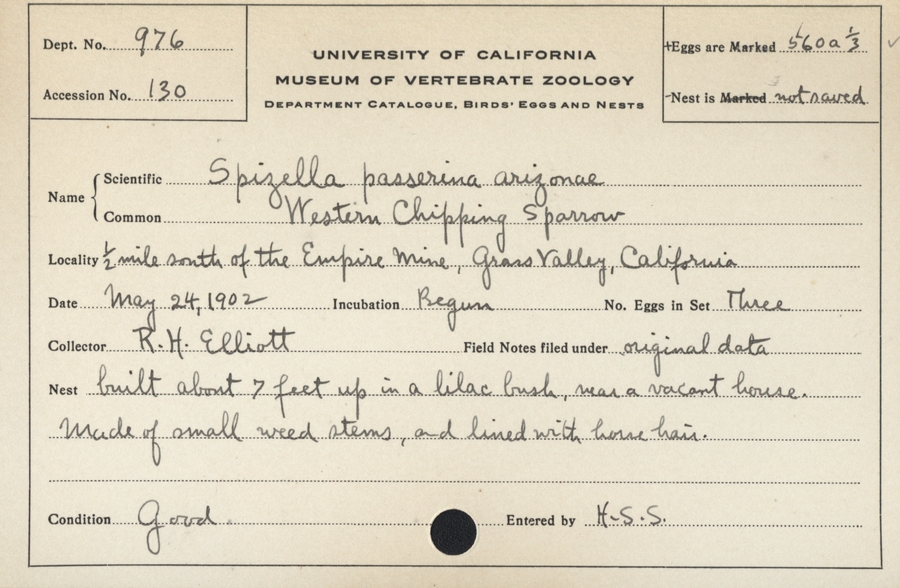 Dept. No. 976
Accession No. 130
UNIVERSITY OF CALIFORNIA
MUSEUM OF VERTEBRATE ZOOLOGY
DEPARTMENT CATALOGUE, BIRDS' EGGS AND NESTS
+Eggs are Marked 560a 1/3 ✓
-Nest is Marked not saved
Name
Scientific Spizella passerina arizonae
Common Western Chipping Sparrow
Locality 1/2 mile south of the Empire Mine, Grass Valley, California
Date May 24, 1902 Incubation Begun No. Eggs in Set Three
Collector R. H. Elliott Field Notes filed under original data
Nest built about 7 feet up in a lilac bush, near a vacant house.
Made of small weed stems, and lined with horse hair.
Condition Good. Entered by H.S.S.